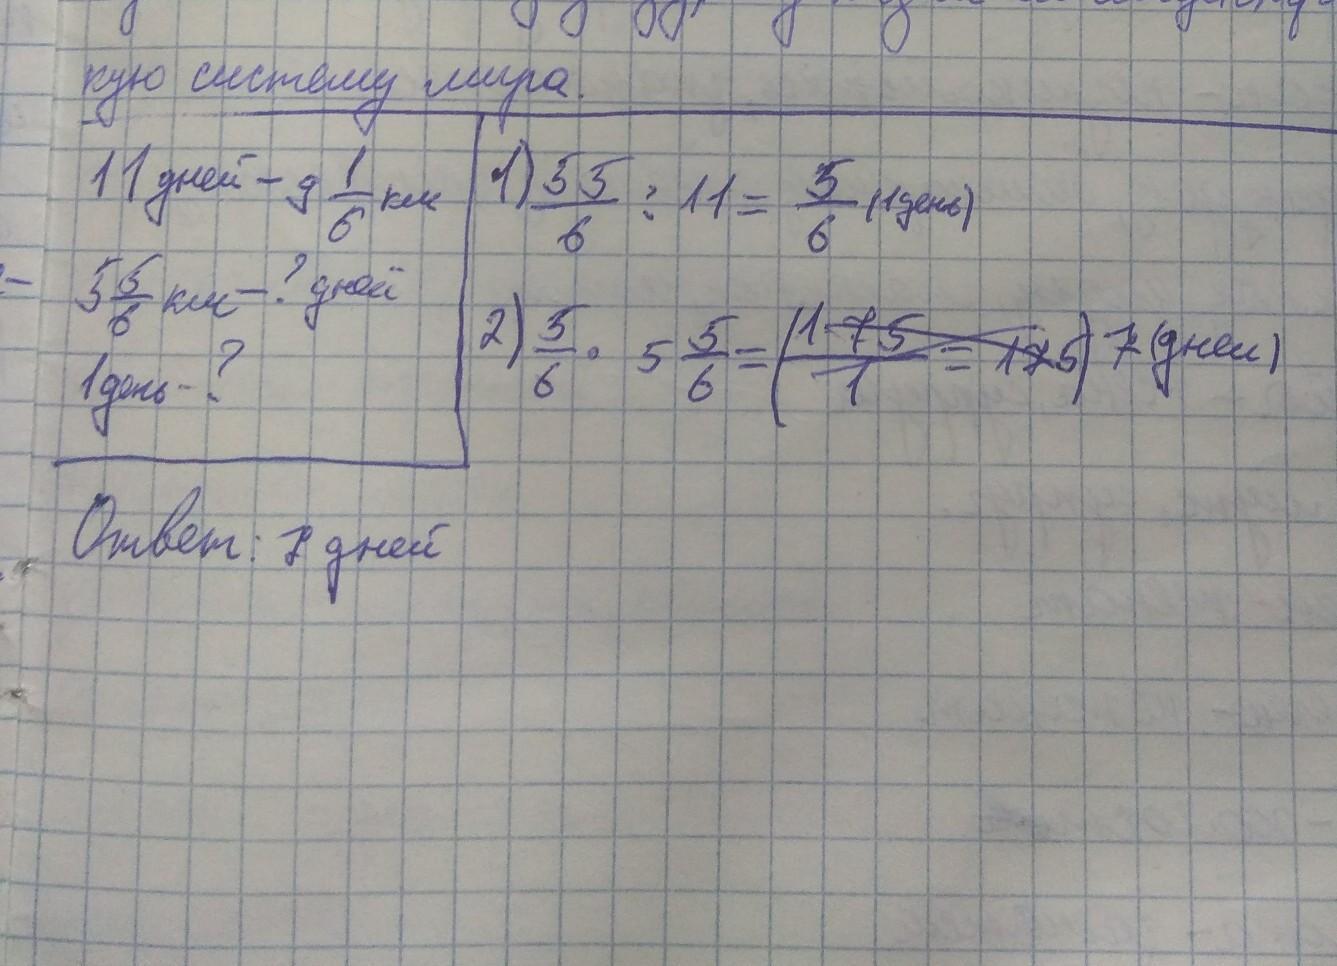 кую систему мира.
11 дней - 9 1/6 км
5 5/6 км - ? дней
1 день - ?
1) 55/6 : 11 = 5/6 (1 день)
2) 5/6 · 5 5/6 = (175/1 = 175) 7 (дней)
Ответ: 7 дней